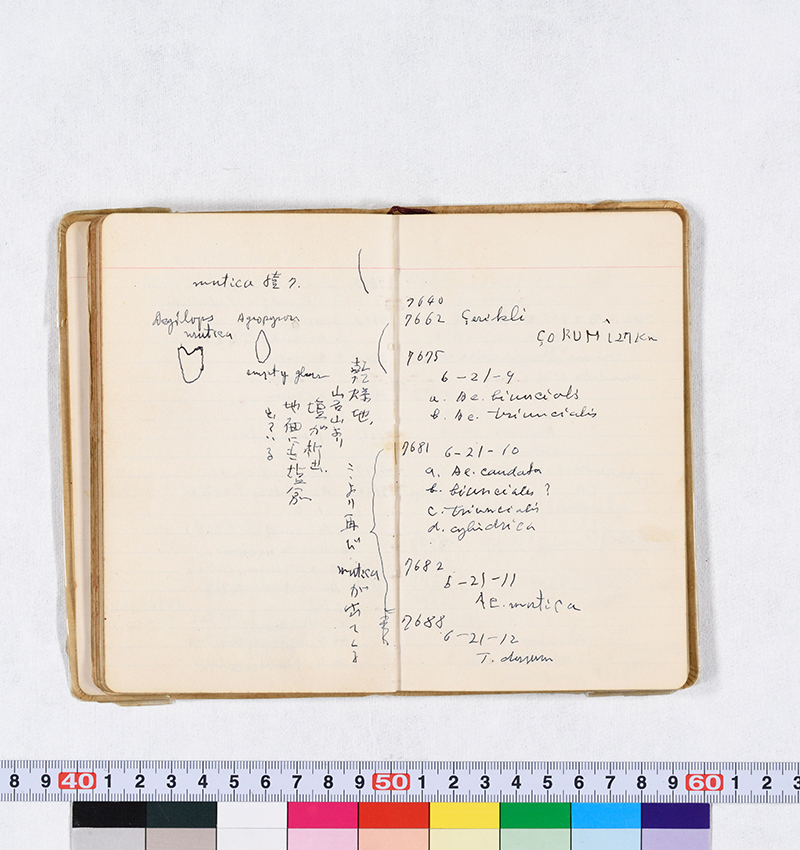 mutica 續く.
Aegilops
mutica
Agropyron
empty glume
乾燥地,
岩山あり
塩が析出
地面にも塩分
出ている
ここより再び mutica が出てくる
7640
7662 Çerikli
ÇORUM 127 Km
7675
6-21-9
a. Ae. biuncialis
b. Ae. triuncialis
7681 6-21-10
a. Ae. caudata
b. biuncialis ?
c. triuncialis
d. cylindrica
7682
6-21-11
Ae. mutica
7688
6-21-12
T. durum
8 9 40 1 2 3 4 5 6 7 8 9 50 1 2 3 4 5 6 7 8 9 60 1 2 3